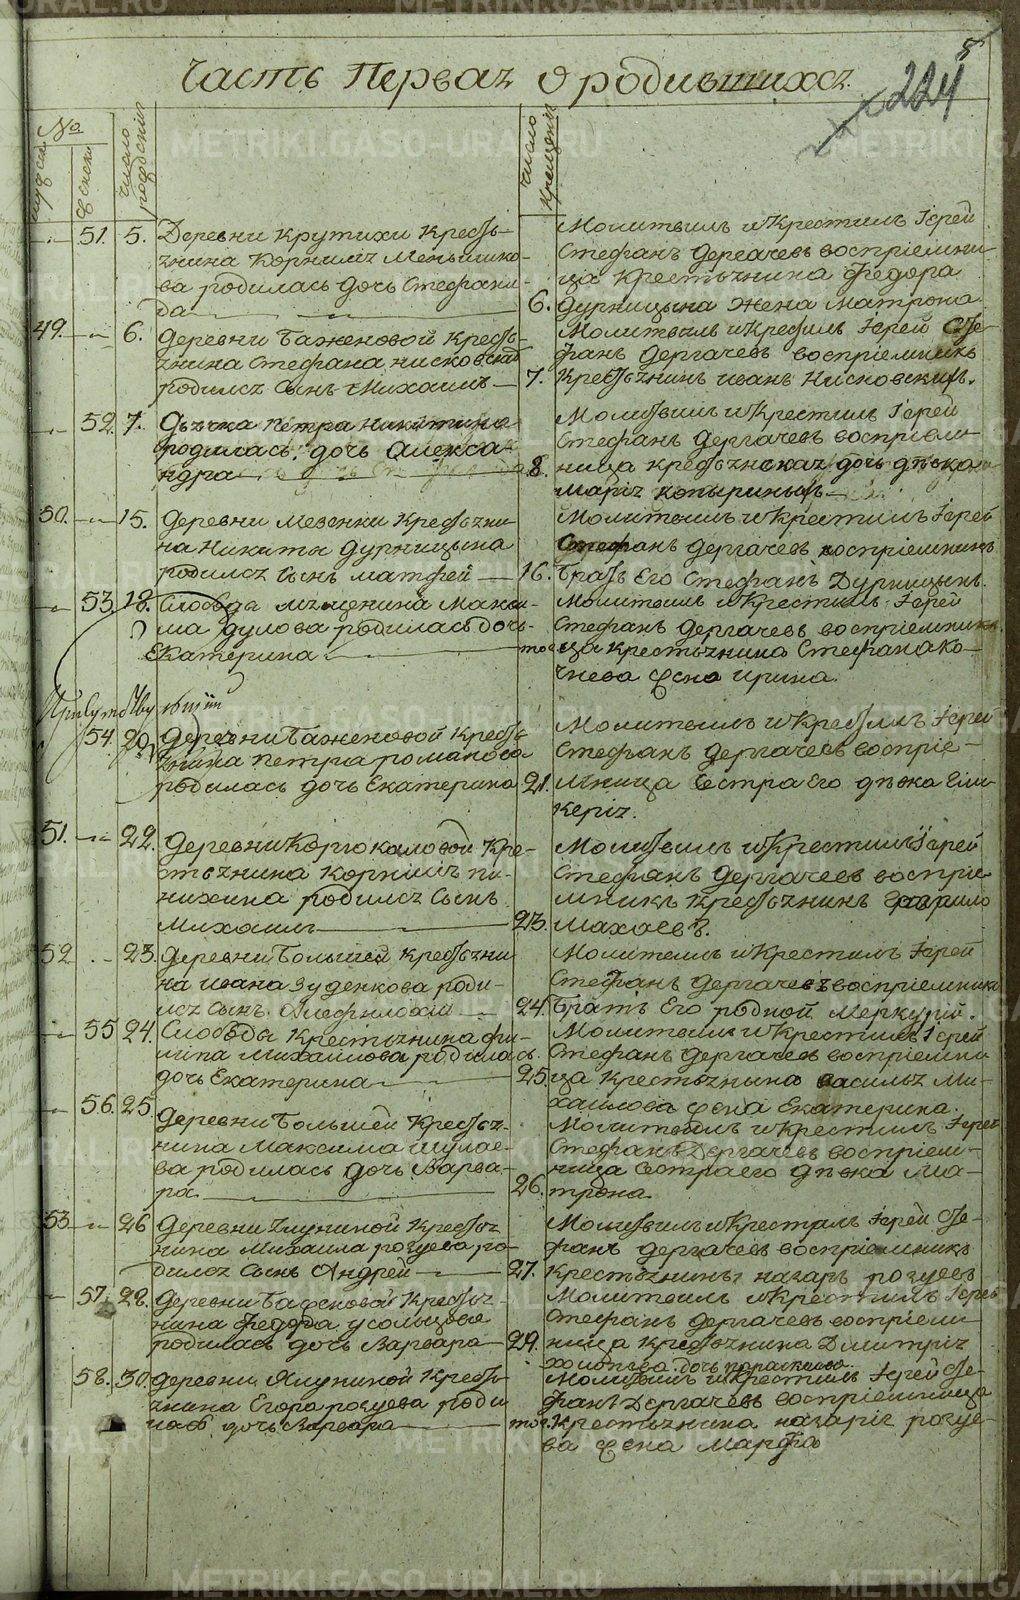 5
224
Часть Первая О родившихся.
№
мужеска
женска
число рождения
число крещения
51. 5. Деревни Крутихи Кресть-
янина Корнила Меньшико-
ва родилась дочь Стефани-
да
Молитвилъ и Крестилъ Іерей
Стефанъ Дергачевъ восприемни-
ца Крестьянина Федора
6. Дурницына жена Матрона
49. 6. Деревни Баженовой Кресть-
янина Стефана Нисковских
родился Сынъ Михаилъ
Молитвилъ и Крестилъ Іерей Сте-
фанъ Дергачевъ восприемникъ
7. Крестьянинъ Иванъ Нисковскихъ.
52. 7. Дьячка Петра Никитина
родилась дочь Алекса-
ндра
Молитвилъ и Крестилъ Іерей
Стефанъ Дергачевъ восприем-
8. ница крестьянская дочь девка
Марія Копыриныхъ
50. 15. Деревни Мезенки Крестьяни-
на Никиты Дурницына
родился Сынъ Матфей
Молитвилъ и Крестилъ Іерей
Стефанъ Дергачевъ восприемникъ
16. Братъ Его Стефанъ Дурницынъ.
53. 18. Слободы мещенина Макси-
ма Дулова родилась дочь
Екатерина
Молитвилъ и Крестилъ Іерей
Стефанъ Дергачевъ восприемни-
тог ца крестьянина Стефана Ко-
чнева жена Ирина.
54. 20. Деревни Баженовой Кресть-
янина Петра Романова
родилась дочь Екатерина
Молитвилъ и Крестилъ Іерей
Стефанъ Дергачевъ восприе-
21. мница Сестра Его девка Гли-
керія.
51. 22. Деревни Коргокаловой Кре-
стьянина Корнила Пи-
нихина родился Сынъ
Михаилъ
Молитвилъ и Крестилъ Іерей
Стефанъ Дергачевъ восприе-
мникъ Крестьянинъ Гаврило
23. Махаевъ.
52. 23. Деревни Большей Крестьяни-
на Ивана Зуденкова роди-
лся Сынъ Амфилохій
Молитвилъ и Крестилъ Іерей
Стефанъ Дергачевъ восприемникъ
24. Братъ Его родной Меркурій.
55. 24. Слободы Крестьянина Фи-
липа Михайлова родилась
дочь Екатерина
Молитвилъ и Крестилъ Іерей
Стефанъ Дергачевъ восприемни-
25. ца Крестьянина Василья Ми-
хайлова жена Екатерина.
56. 25. Деревни Большей Крестья-
нина Максима Шулае-
ва родилась дочь Варва-
ра.
Молитвилъ и Крестилъ Іерей
Стефанъ Дергачевъ восприем-
ница Сестра его девка Ма-
26. трона
53. 26. Деревни Ялуниной Крестья-
нина Михаила Рогуева ро-
дился Сынъ Андрей
Молитвилъ и Крестилъ Іерей Сте-
фанъ Дергачевъ восприемникъ
27. Крестьянинъ Назаръ Рогуевъ
57. 28. Деревни Баженовой Крестья-
нина Федора Усольцова
родилась дочь Варвара
Молитвилъ и Крестилъ Іерей
Стефанъ Дергачевъ восприем-
29. ница Крестьянина Димитрія
дочь Параскева
58. 30. Деревни Ялуниной Кресть-
янина Егора Рогуева роди-
лась дочь Варвара
Молитвилъ и Крестилъ Іерей Сте-
фанъ Дергачевъ восприемница
тог Крестьянина Назарія Рогуе-
ва жена Марфа
METRIKI.GASO-URAL.RU